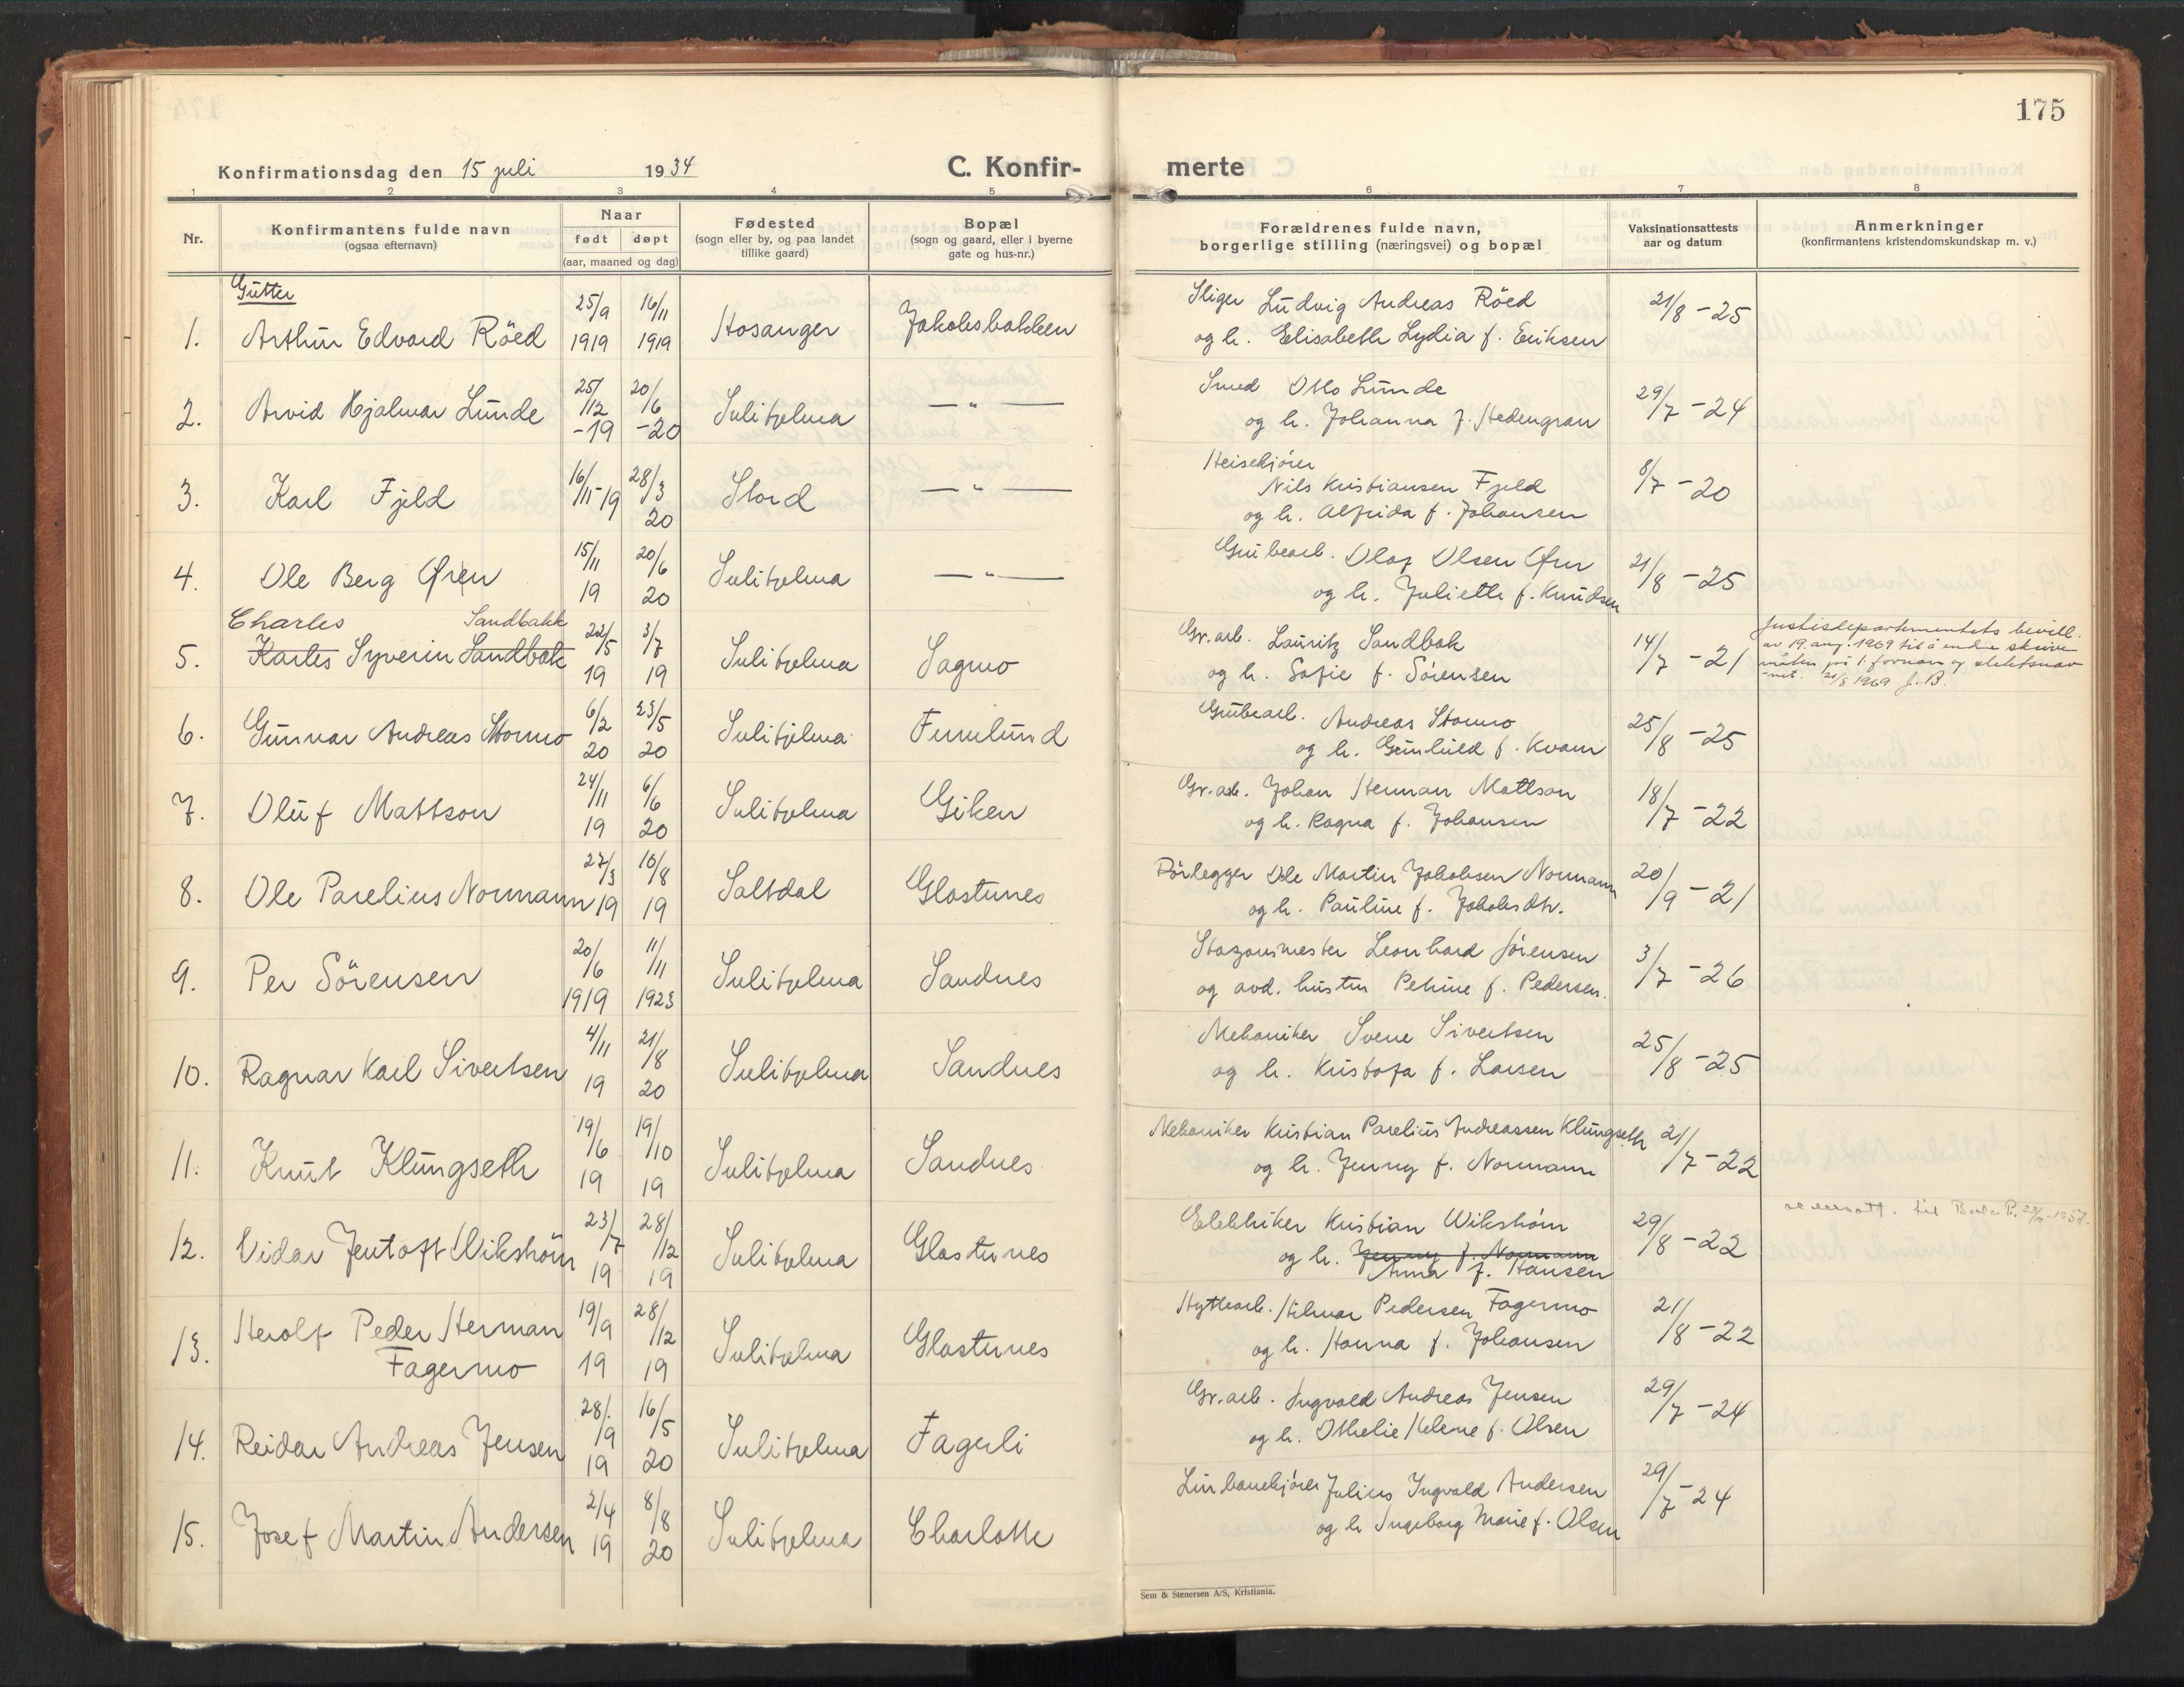 175
Konfirmationsdag den 15 juli 1934
C. Konfir- merte
1 2 3 4 5 6 7 8
Nr.
Konfirmantens fulde navn
(ogsaa efternavn)
Naar
født døpt
(aar, maaned og dag)
Fødested
(sogn eller by, og paa landet
tillike gaard)
Bopæl
(sogn og gaard, eller i byerne
gate og hus-nr.)
Forældrenes fulde navn,
borgerlige stilling (næringsvei) og bopæl
Vaksinationsattests
aar og datum
Anmerkninger
(konfirmantens kristendomskundskap m. v.)
Gutter
1. Arthur Edvard Röed 25/9 1919 16/11 1919 Hosanger Jakobsbakken
Stiger Ludvig Andreas Röed
og h. Elisabeth Lydia f. Eriksen
21/8 - 25
2. Arvid Hjalmar Lunde 25/12 -19 20/6 -20 Sulitjelma — " —
Smed Otto Lunde
og h. Johanna f. Hedengran
29/7 - 24
3. Karl Fjeld 16/11-19 28/3 20 Stord — " —
Heisekjører
Nils Kristiansen Fjeld
og h. Alfrida f. Johansen
8/7 - 20
4. Ole Berg Øren 15/11 19 20/6 20 Sulitjelma — " —
Grubearb. Olaf Olsen Øren
og h. Juliette f. Knudsen
21/8 - 25
Charles Sandbakk
5. Karles Syverin Sandbak 22/5 19 3/7 19 Sulitjelma Sagmo
Gr. arb. Lauritz Sandbak
og h. Sofie f. Sørensen
14/7 - 21
Justisdepartementets bevill.
av 19. aug. 1969 til å endre skrive
måten på 1. fornavn og slektsnav
-net. 21/8 1969 J. B.
6. Gunnar Andreas Stormo 6/2 20 23/5 20 Sulitjelma Furulund
Grubearb. Andreas Stormo
og h. Gunhild f. Kvam
25/8 - 25
7. Oluf Mattson 24/11 19 6/6 20 Sulitjelma Giken
Gr. arb. Johan Herman Mattson
og h. Ragna f. Johansen
18/7 - 22
8. Ole Parelius Normann 27/3 19 10/8 19 Saltdal Glastunes
Rörlegger Ole Martin Jakobsen Normann
og h. Pauline f. Jakobsdtr.
20/9 - 21
9. Per Sörensen 20/6 1919 11/11 1923 Sulitjelma Sandnes
Stasjonsmester Leonhard Sörensen
og avd. hustru Petrine f. Pedersen.
3/7 - 26
10. Ragnar Karl Sivertsen 4/11 19 21/8 20 Sulitjelma Sandnes
Mekaniker Svene Sivertsen
og h. Kristofa f. Larsen
25/8 - 25
11. Knut Klungseth 19/6 19 19/10 19 Sulitjelma Sandnes
Mekaniker Kristian Parelius Andreassen Klungseth
og h. Jenny f. Normann
21/7 - 22
12. Vidar Jentoft Wikström 23/7 19 28/12 19 Sulitjelma Glastunes
Elektriker Kristian Wikström
og h. Jenny f. Normann
Anna f. Hansen
29/8 - 22
til
13. Herolf Peder Herman
Fagermo 19/9 19 28/12 19 Sulitjelma Glastunes
Hyttearb. Hilmar Pedersen Fagermo
og h. Hanna f. Johansen
21/8 - 22
14. Reidar Andreas Jensen 28/9 19 16/5 20 Sulitjelma Fagerli
Gr. arb. Ingvald Andreas Jensen
og h. Othelie Helene f. Olsen
29/7 - 24
15. Josef Martin Andersen 2/4 19 8/8 20 Sulitjelma Charlotte
Linbanekjører Julius Ingvald Andersen
og h Ingeborg Marie f. Olsen
29/7 - 24
Sem & Stenersen A/S, Kristiania.